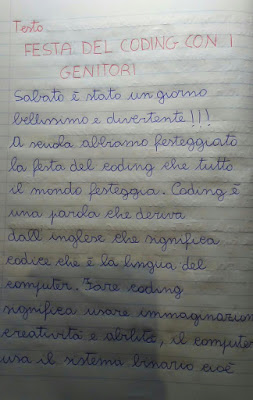 Testo
FESTA DEL CODING CON I
GENITORI
Sabato è stato un giorno
bellissimo e divertente!!!
A scuola abbiamo festeggiato
la festa del coding che tutto
il mondo festeggia. Coding è
una parola che deriva
dall'inglese che significa
codice che è la lingua del
computer. Fare coding
significa usare immaginazion
creatività e abilità, il computer
usa il sistema binario cioè